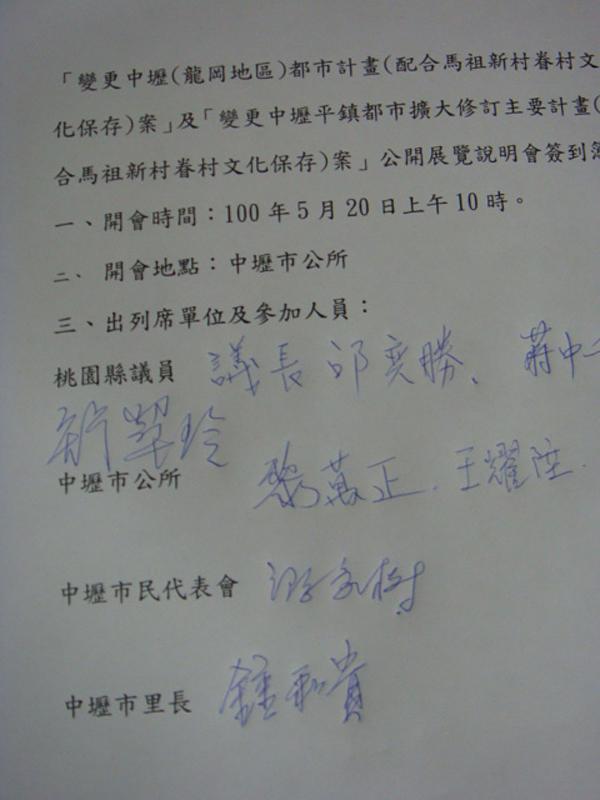 「變更中壢(龍岡地區)都市計畫(配合馬祖新村眷村文
化保存)案」及「變更中壢平鎮都市擴大修訂主要計畫(
合馬祖新村眷村文化保存)案」公開展覽說明會簽到簿
一、開會時間：100年5月20日上午10時。
二、開會地點：中壢市公所
三、出列席單位及參加人員：
桃園縣議員 議長邱奕勝、蔣中
中壢市公所 黎萬正．王耀陞．
中壢市民代表會
中壢市里長 鍾和貴